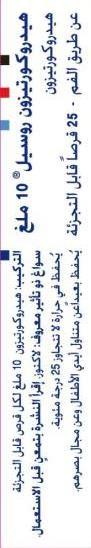 هيدروكورتيزون روسيل® 10 ملغ
هيدروكورتيزون
عن طريق الفم - 25 قرصاً قابل التجزئة
التركيب: هيدروكورتيزون 10 ملغ لكل قرص قابل التجزئة
سواغ ذو تأثير معروف: لاكتوز. إقرأ النشرة بتمعن قبل الاستعمال.
يُحفظ في حرارة لا تتجاوز 25 درجة مئوية.
يُحفظ بعيداً عن متناول أيدي الأطفال وعن مجال بصرهم.